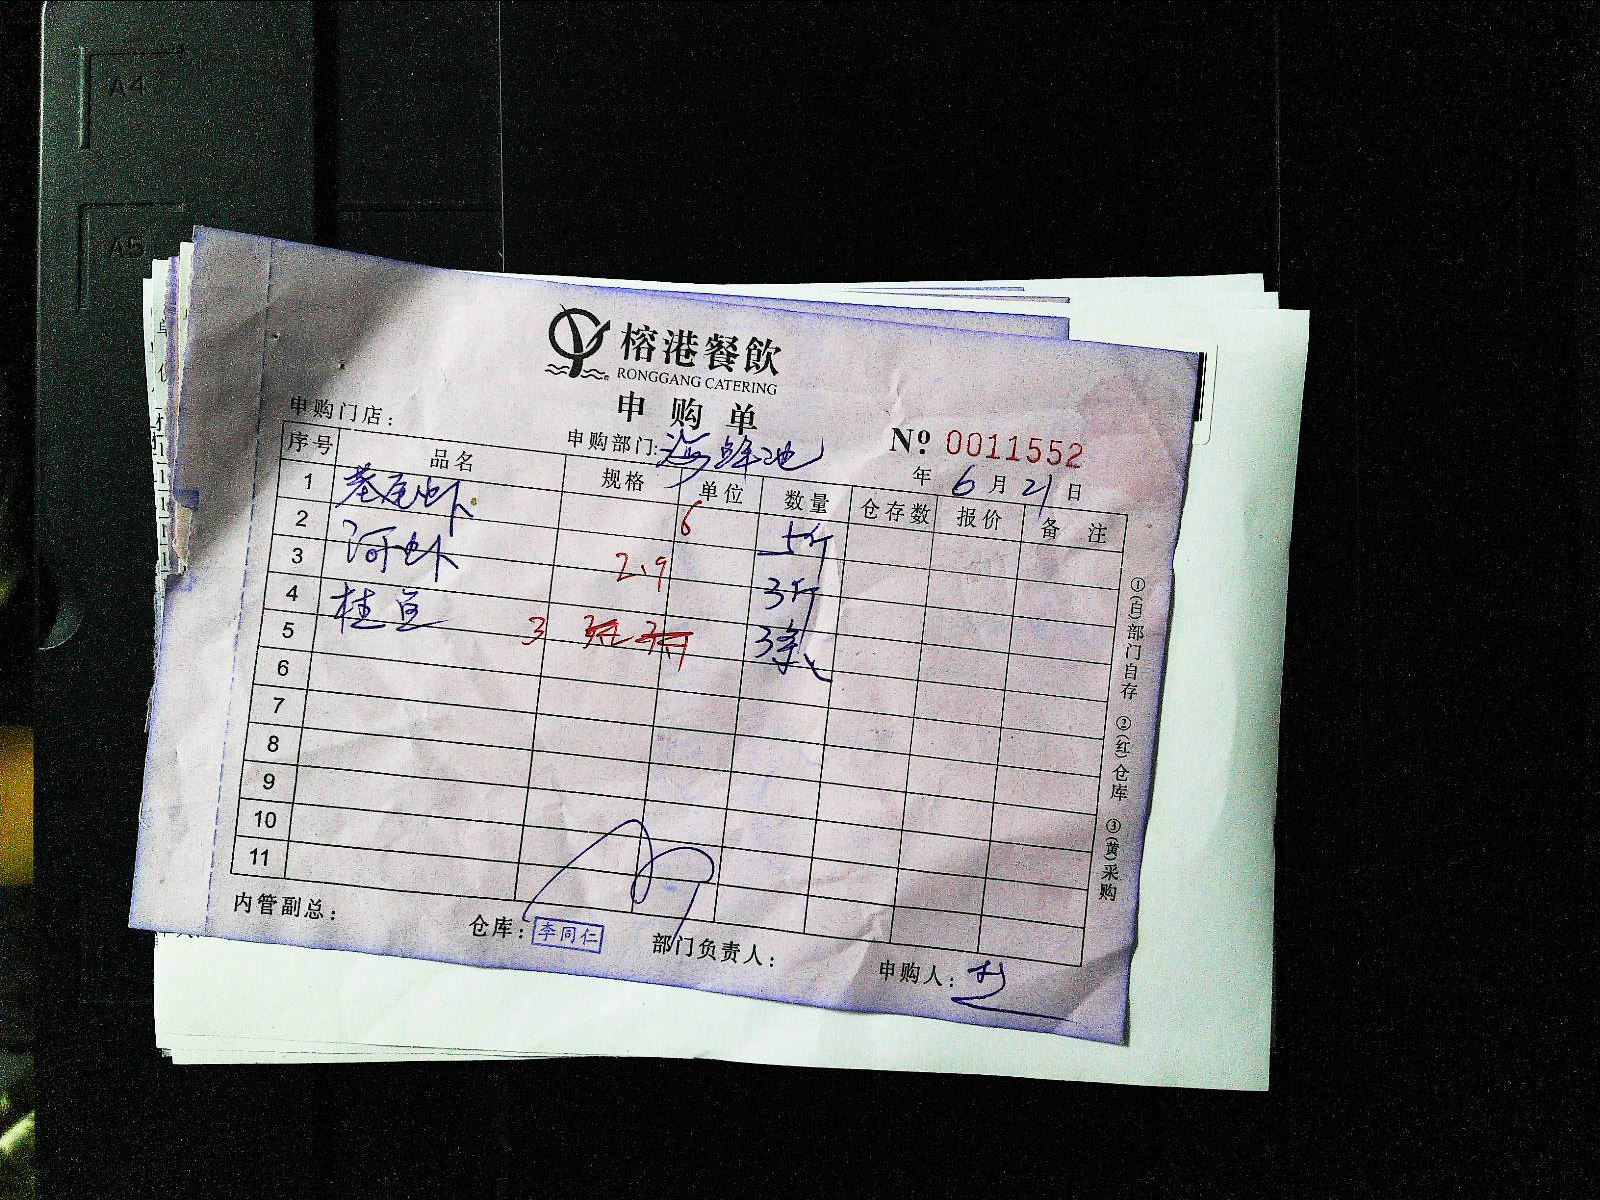 A4
A5
榕港餐飲
RONGGANG CATERING
申购单
申购门店：
申购部门：海鲜池
№ 0011552
年 6 月 21 日
序号 品名 规格 单位 数量 仓存数 报价 备注
1 基尾虾 6 5斤
2 河虾 2.9 3斤
3 桂鱼 3 3条
4
5
6
7
8
9
10
11
①(白)部门自存 ②(红)仓库 ③(黄)采购
内管副总：
仓库：李同仁
部门负责人：
申购人：